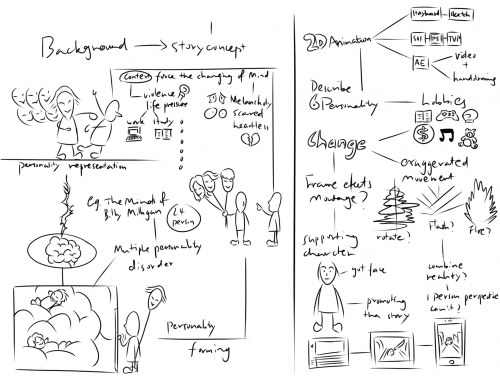 Background → story concept
context force the changing of Mind
violence
life pressure
work study
Melancholy
scared
heartless
personality representation
e.g. The Minds of
Billy Milligan
24
person
Multiple personality
disorder
personality
forming
2D Animation
storyboard
sketch
SAI
PS
TVP
AE
video
+
handdrawing
Describe
6 Personality
hobbies
$
Change
exaggerated
movement
Frame effects
Montage?
rotate?
Flash?
Fire?
supporting
character
got face
promoting
the story
combine
reality?
1 person perspective
can't?